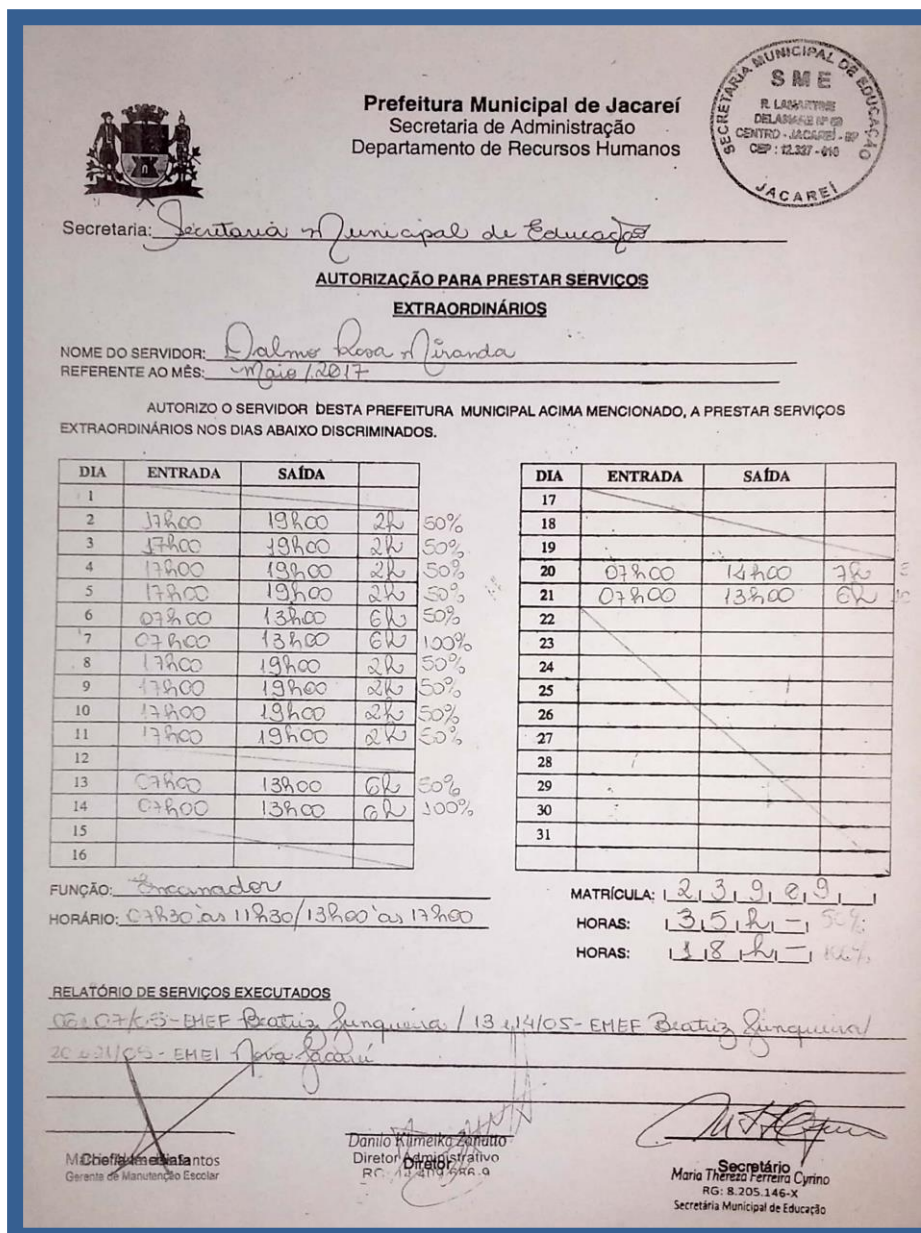 SECRETARIA MUNICIPAL DE EDUCAÇÃO
SME
R. LAMARTINE
DELAMARE Nº 69
CENTRO - JACAREÍ - SP
CEP : 12.327 - 010
JACAREÍ
Prefeitura Municipal de Jacareí
Secretaria de Administração
Departamento de Recursos Humanos
Secretaria: Secretaria Municipal de Educação
AUTORIZAÇÃO PARA PRESTAR SERVIÇOS
EXTRAORDINÁRIOS
NOME DO SERVIDOR: Dalmo Rosa Miranda
REFERENTE AO MÊS: Maio / 2017
AUTORIZO O SERVIDOR DESTA PREFEITURA MUNICIPAL ACIMA MENCIONADO, A PRESTAR SERVIÇOS
EXTRAORDINÁRIOS NOS DIAS ABAIXO DISCRIMINADOS.
DIA ENTRADA SAÍDA
1
2 17h00 19h00 2h 50%
3 17h00 19h00 2h 50%
4 17h00 19h00 2h 50%
5 17h00 19h00 2h 50%
6 07h00 13h00 6h 50%
7 07h00 13h00 6h 100%
8 17h00 19h00 2h 50%
9 17h00 19h00 2h 50%
10 17h00 19h00 2h 50%
11 17h00 19h00 2h 50%
12
13 07h00 13h00 6h 50%
14 07h00 13h00 6h 100%
15
16
DIA ENTRADA SAÍDA
17
18
19
20 07h00 14h00 7h
21 07h00 13h00 6h
22
23
24
25
26
27
28
29
30
31
FUNÇÃO: Encanador
HORÁRIO: 07h30 às 11h30/13h00 às 17h00
MATRÍCULA: 23909
HORAS: 35h - 50%
HORAS: 18h - 100%
RELATÓRIO DE SERVIÇOS EXECUTADOS
06 e 07/05 - EMEF Beatriz Junqueira / 13 e 14/05 - EMEF Beatriz Junqueira /
20 e 21/05 - EMEI Nova Jacareí
Chefia Imediata
Gerente de Manutenção Escolar
Danilo Klimeika Zanutto
Diretor Administrativo
Diretor
RG:
Secretário
Maria Thereza Ferreira Cyrino
RG: 8.205.146-X
Secretária Municipal de Educação